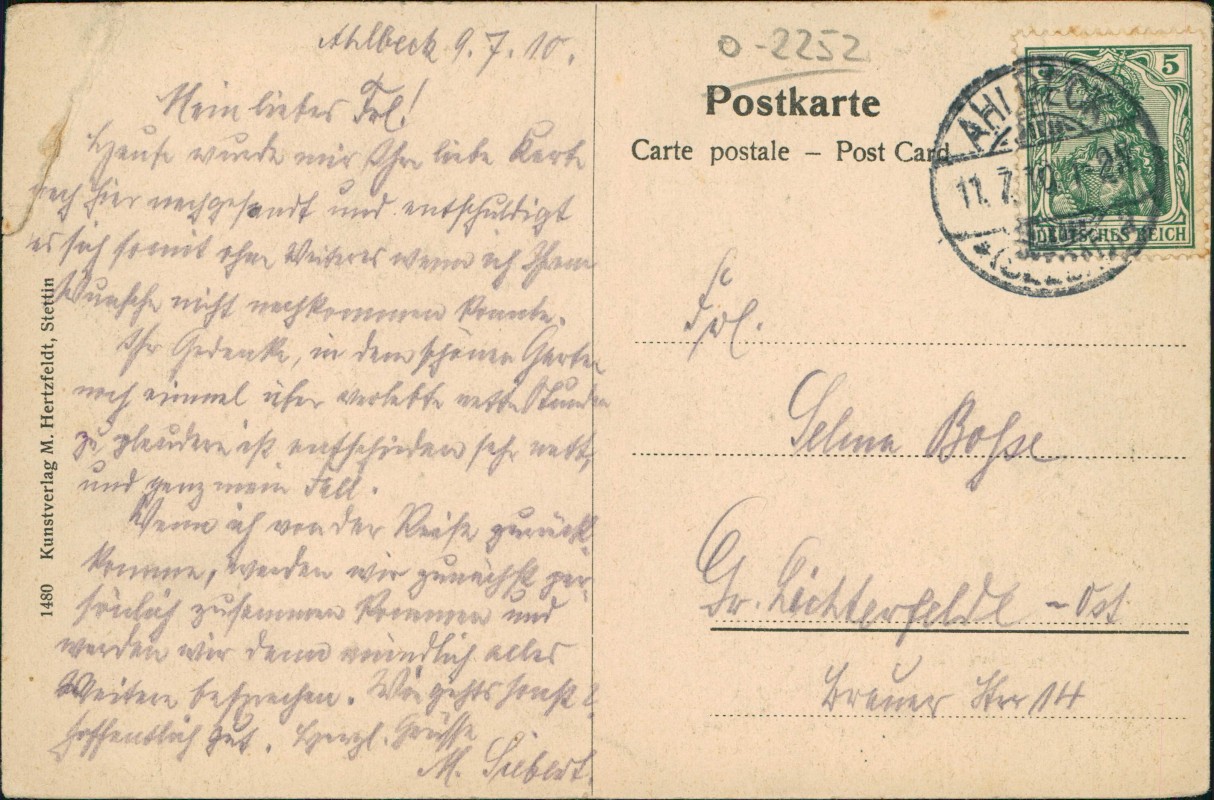 Ahlbeck 9.7.10.
Mein liebes Frl!
Heute wurde mir Ihre liebe Karte
nach hier nachgesandt und entschuldigt
es sich somit ohne Weiteres wenn ich Ihrem
Wunsche nicht nachkommen konnte.
Ihr Gedanke, in dem schönen Garten
noch einmal über verlebte nette Stunden
zu plaudern ist entschieden sehr nett,
und ganz mein Fall.
Wenn ich von der Reise zurück-
komme, werden wir zunächst per-
sönlich zusammen kommen und
werden wir dann mündlich alles
Weitere besprechen. Wie gehts sonst?
hoffentlich gut. Herzl. Grüsse
M. Siebert.
1480 Kunstverlag M. Hertzfeldt, Stettin
0-2252
Postkarte
Carte postale – Post Card
5
DEUTSCHES REICH
AHLBECK
11.7.10.
Frl.
Selma Bosse
Gr. Lichterfelde - Ost
Brauer Str 14